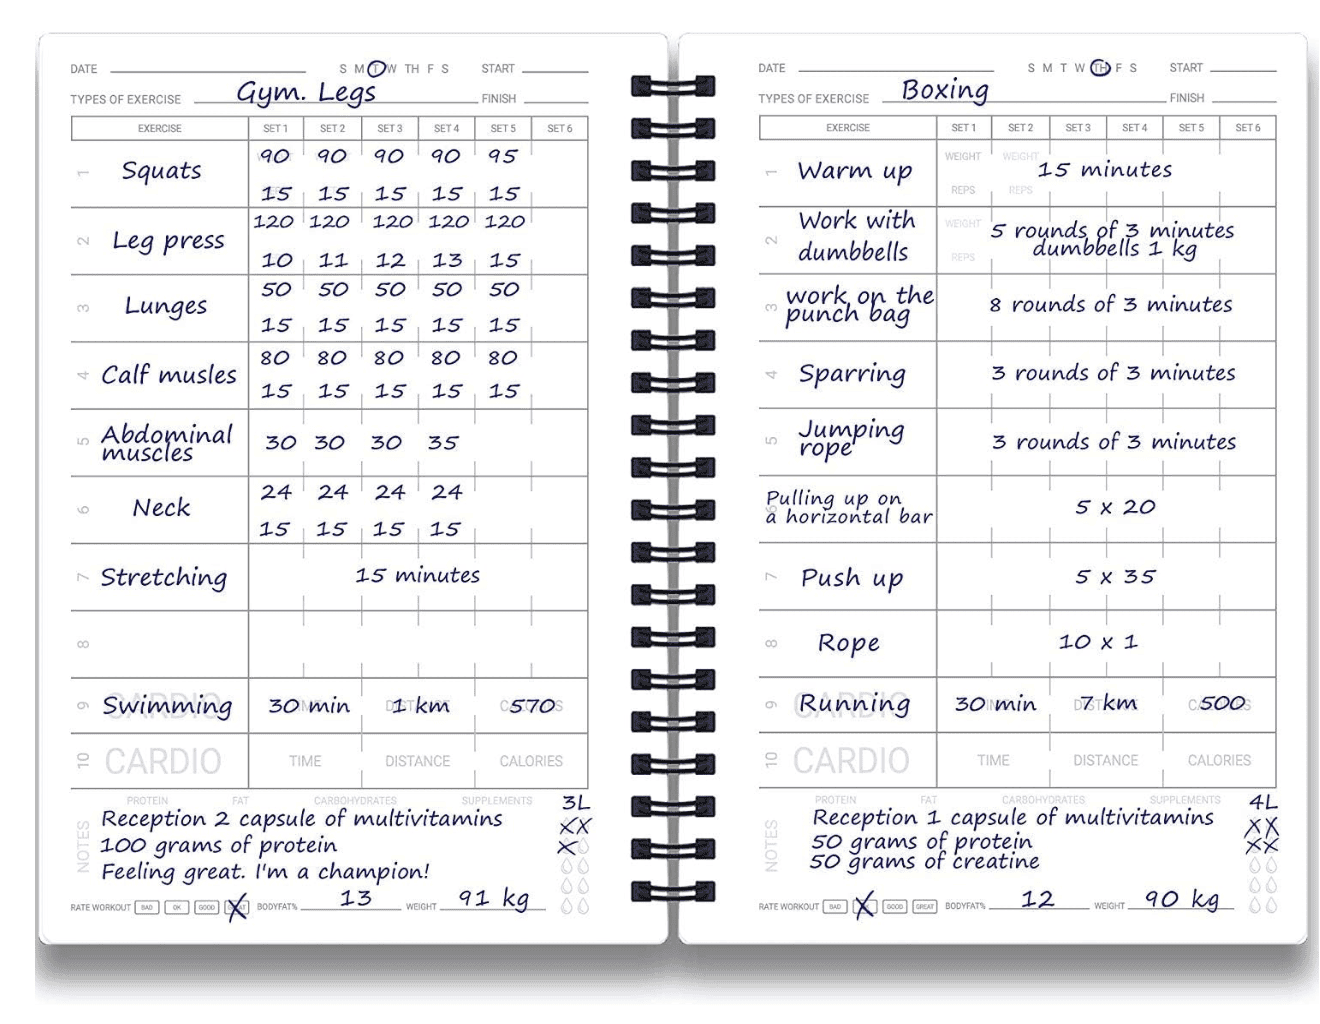 DATE S M T W TH F S START
TYPES OF EXERCISE Gym. Legs FINISH
EXERCISE SET 1 SET 2 SET 3 SET 4 SET 5 SET 6
1 Squats 90 90 90 90 95
15 15 15 15 15
2 Leg press 120 120 120 120 120
10 11 12 13 15
3 Lunges 50 50 50 50 50
15 15 15 15 15
4 Calf musles 80 80 80 80 80
15 15 15 15 15
5 Abdominal
muscles 30 30 30 35
6 Neck 24 24 24 24
15 15 15 15
7 Stretching 15 minutes
8
9 CARDIO Swimming 30 min 1 km 570
10 CARDIO TIME DISTANCE CALORIES
PROTEIN FAT CARBOHYDRATES SUPPLEMENTS
3L
NOTES
Reception 2 capsule of multivitamins XX
100 grams of protein X
Feeling great. I'm a champion!
RATE WORKOUT BAD OK GOOD GREAT X BODYFAT% 13 WEIGHT 91 kg
DATE S M T W TH F S START
TYPES OF EXERCISE Boxing FINISH
EXERCISE SET 1 SET 2 SET 3 SET 4 SET 5 SET 6
1 Warm up WEIGHT WEIGHT 15 minutes
REPS REPS
2 Work with
dumbbells WEIGHT 5 rounds of 3 minutes
REPS dumbbells 1 kg
3 work on the
punch bag 8 rounds of 3 minutes
4 Sparring 3 rounds of 3 minutes
5 Jumping
rope 3 rounds of 3 minutes
6 Pulling up on
a horizontal bar 5 x 20
7 Push up 5 x 35
8 Rope 10 x 1
9 CARDIO Running 30 min 7 km 500
10 CARDIO TIME DISTANCE CALORIES
PROTEIN FAT CARBOHYDRATES SUPPLEMENTS
4L
NOTES
Reception 1 capsule of multivitamins XX
50 grams of protein XX
50 grams of creatine
RATE WORKOUT BAD X GOOD GREAT BODYFAT% 12 WEIGHT 90 kg